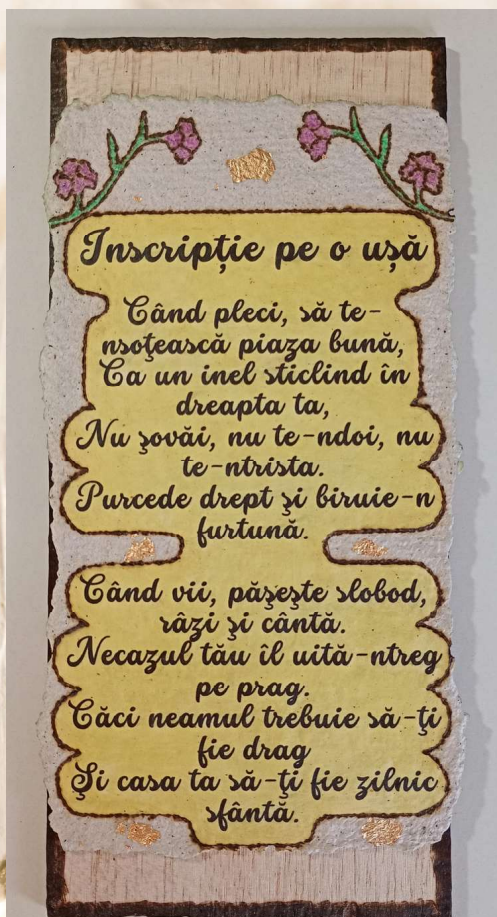 Inscripție pe o ușă
Când pleci, să te-
nsoţească piaza bună,
Ca un inel sticlind în
dreapta ta,
Nu şovăi, nu te-ndoi, nu
te-ntrista.
Purcede drept şi biruie-n
furtună.
Când vii, păşeşte slobod,
râzi şi cântă.
Necazul tău îl uită-ntreg
pe prag.
Căci neamul trebuie să-ţi
fie drag
Şi casa ta să-ţi fie zilnic
sfântă.